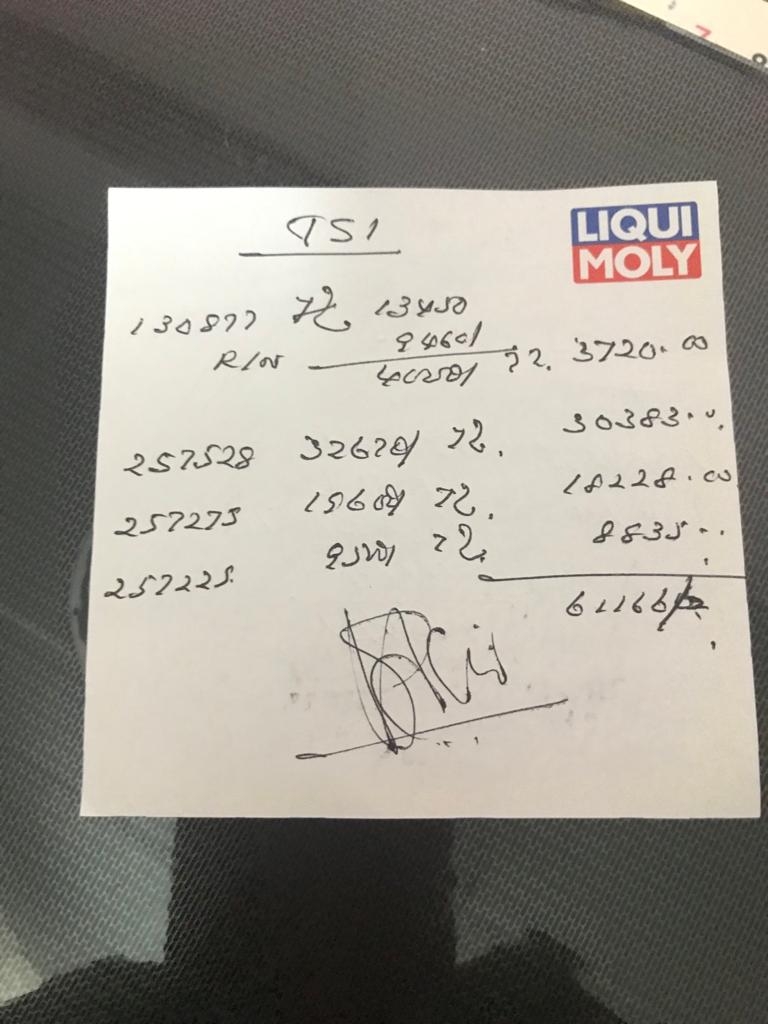 TS1
LIQUI
MOLY
130877 7% 13450
9460/
R/N 4000/ 7%. 3720.00
257528 32670/ 7%. 30383..
257273 19600/ 7%. 18228.00
257225. 9500/ 7%. 8835..
61166/